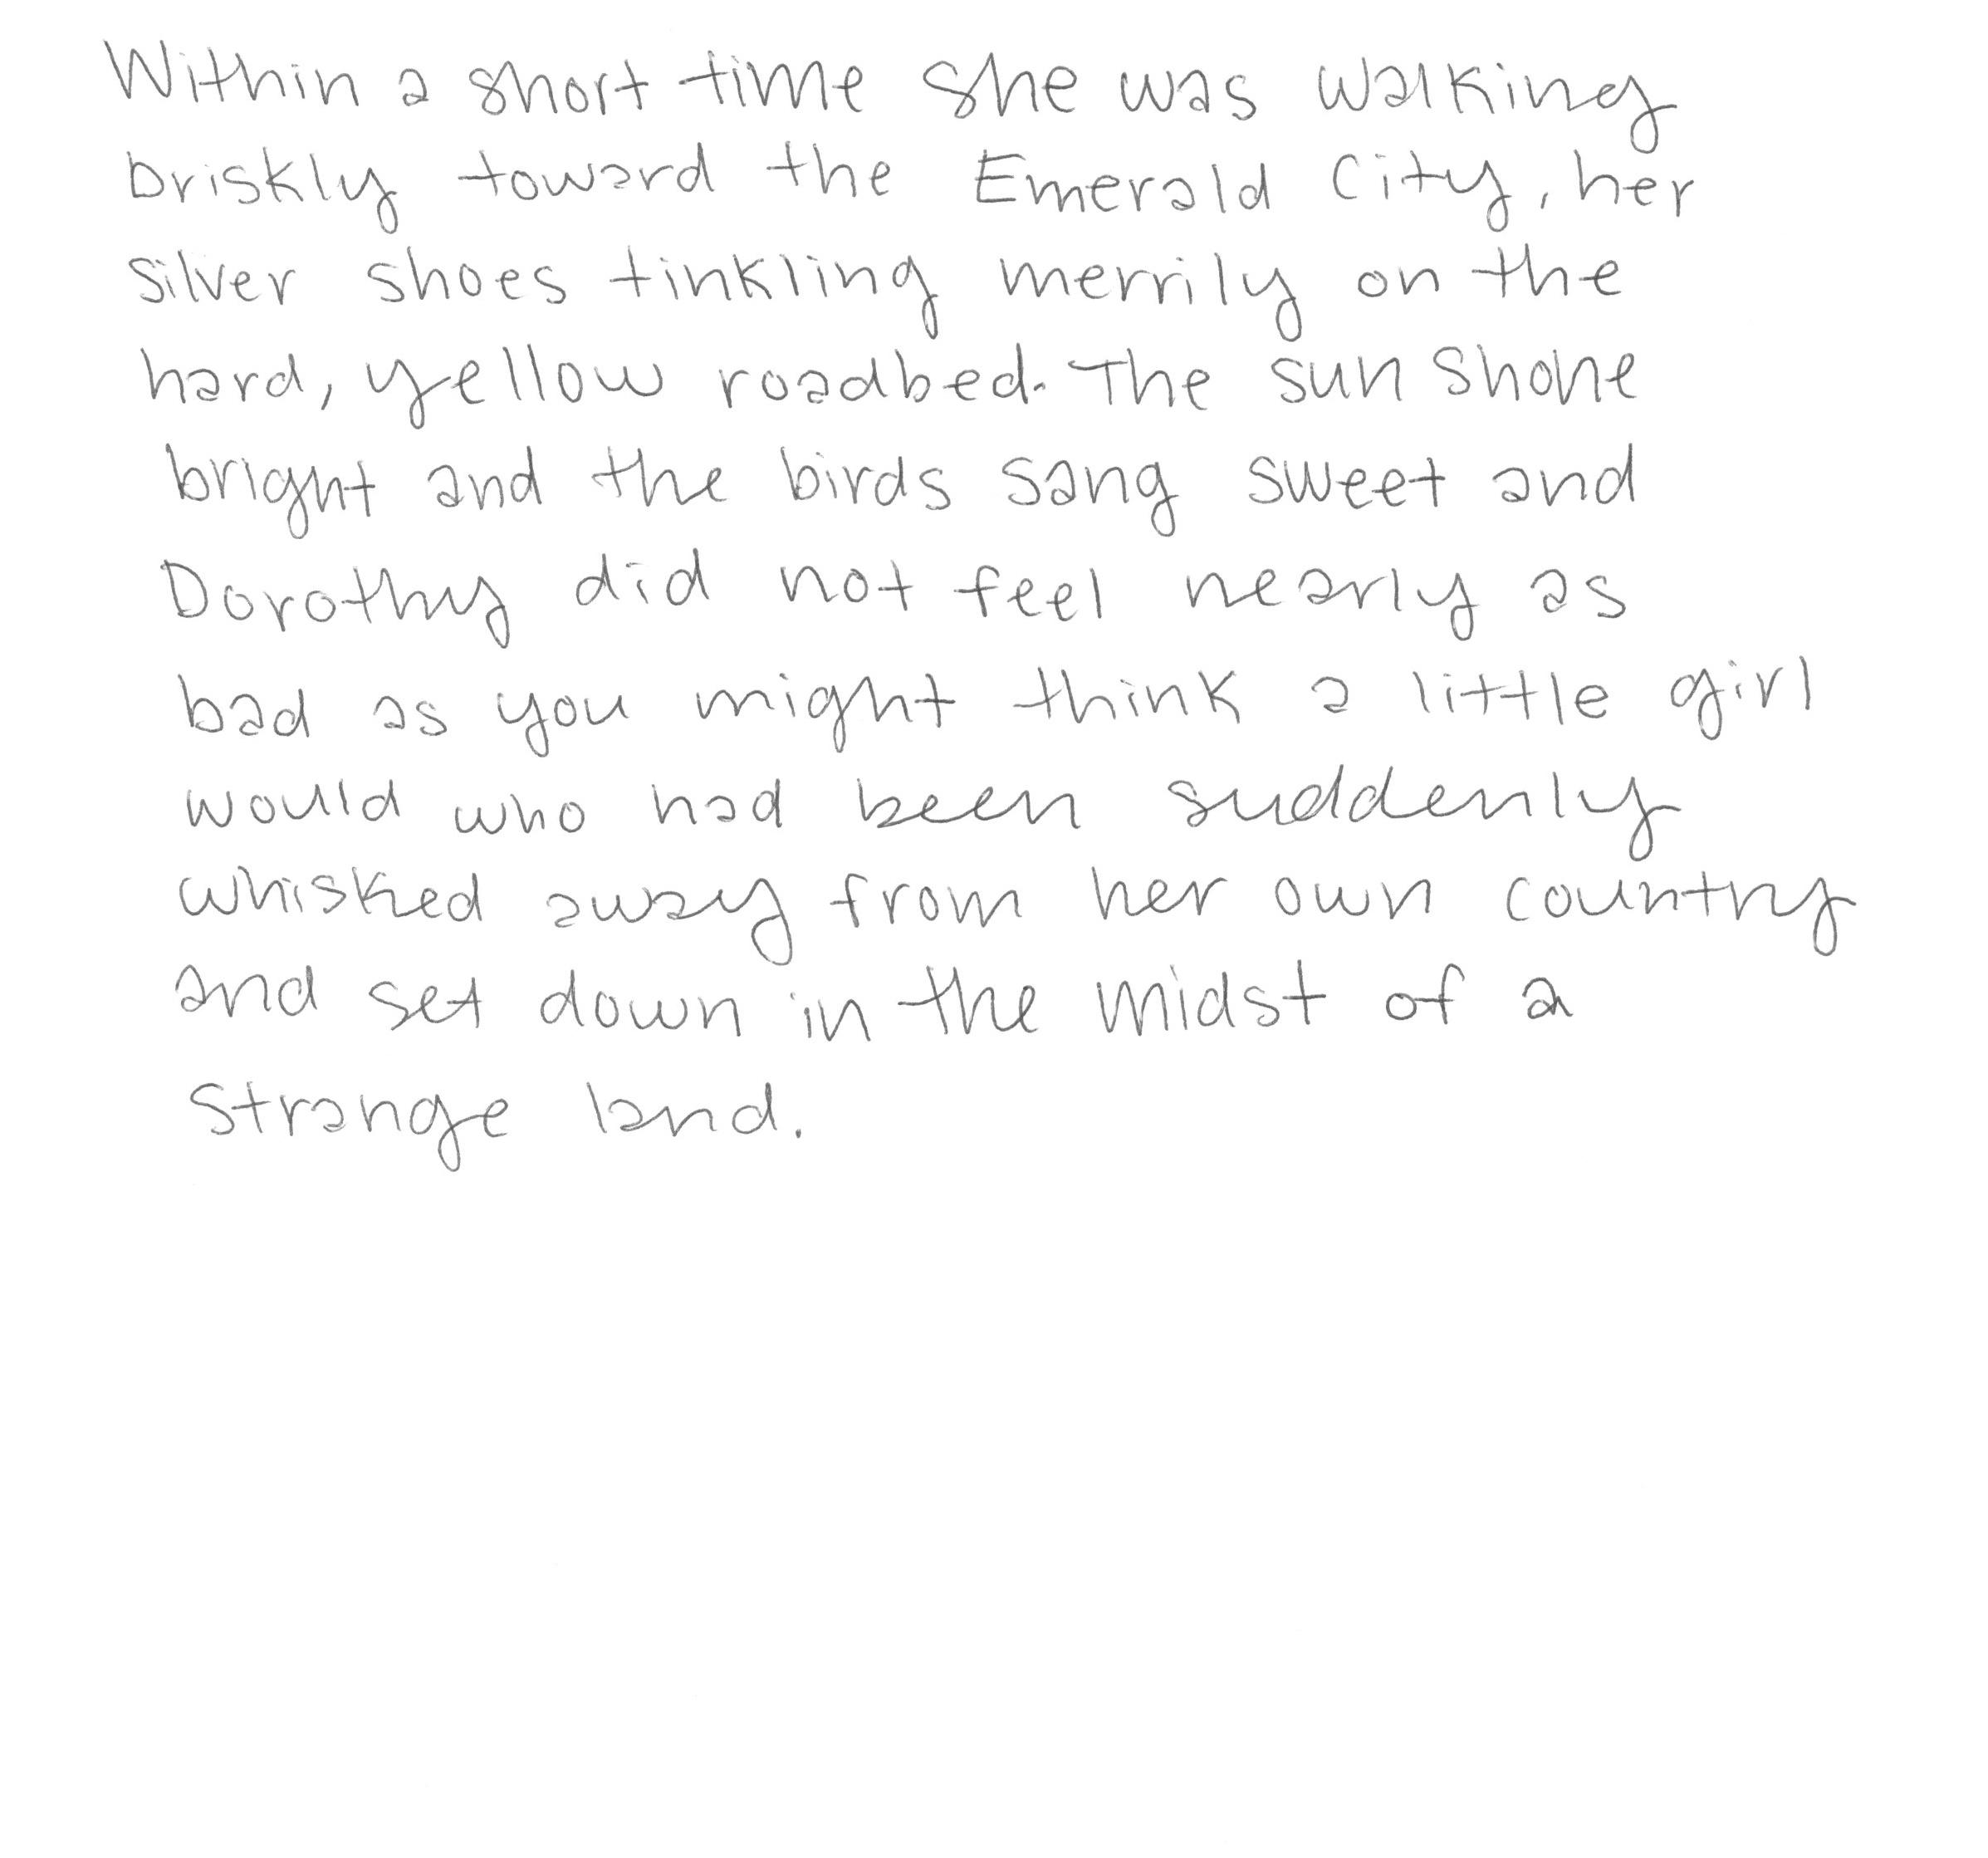 Within a short time she was walking
briskly toward the Emerald City, her
silver shoes tinkling merrily on the
hard, yellow roadbed. The sun shone
bright and the birds sang sweet and
Dorothy did not feel nearly as
bad as you might think a little girl
would who had been suddenly
whisked away from her own country
and set down in the midst of a
strange land.